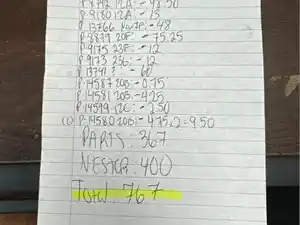 P-8792 12A: - 98.50
P-9180 12A: - 15
P-13766 : - 48
P-8879 20F: - 75.25
P-9175 23F: - 12
P-9173 23G: - 12
P-13741 : - 60
P-14587 20B: - 0.75
P-14581 20B: - 4.25
P-14599 12C: - 2.50
(1) P-14580 20B: - 4.75 x 2 = 9.50
PARTS: 367
NESTOR: 400
Total: 767